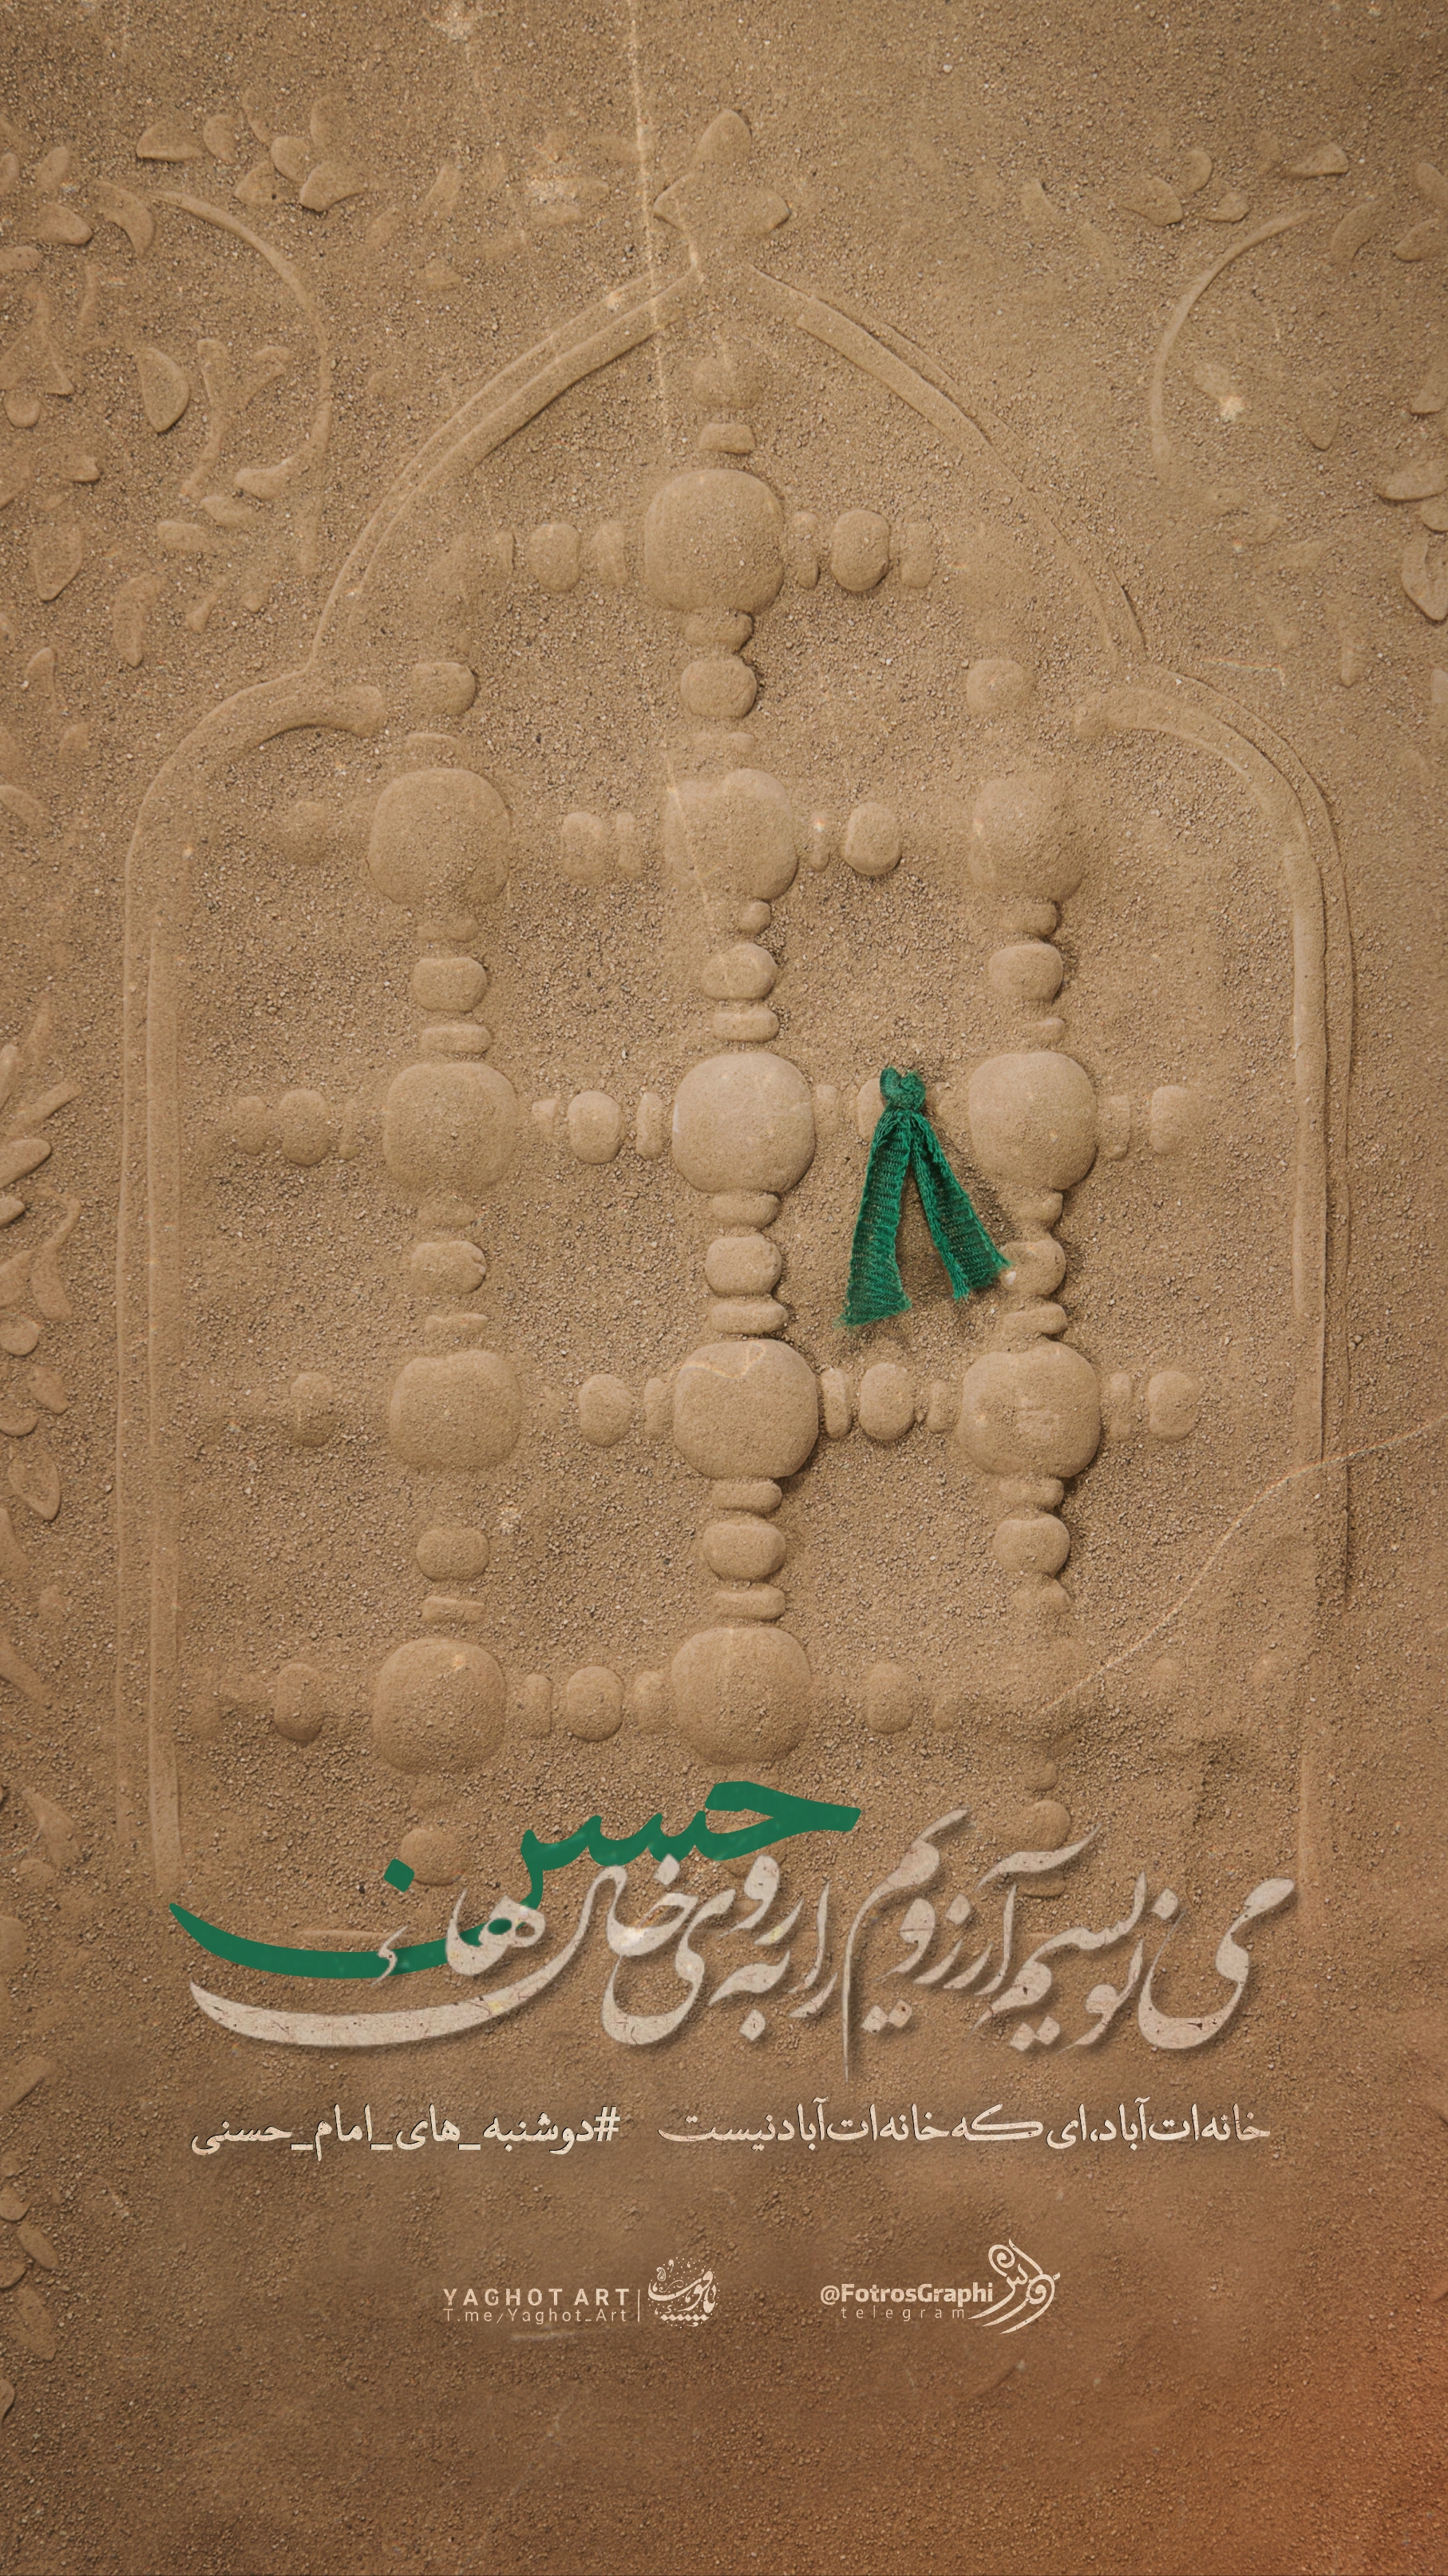 می نویسم آرزویم را به روی خاک های
حسن
خانه‌ات آباد، ای که خانه‌ات آباد نیست #دوشنبه_های_امام_حسنی
YAGHOT ART
T.me/Yaghot_Art
یاقوت
@FotrosGraphi
telegram
فطرس